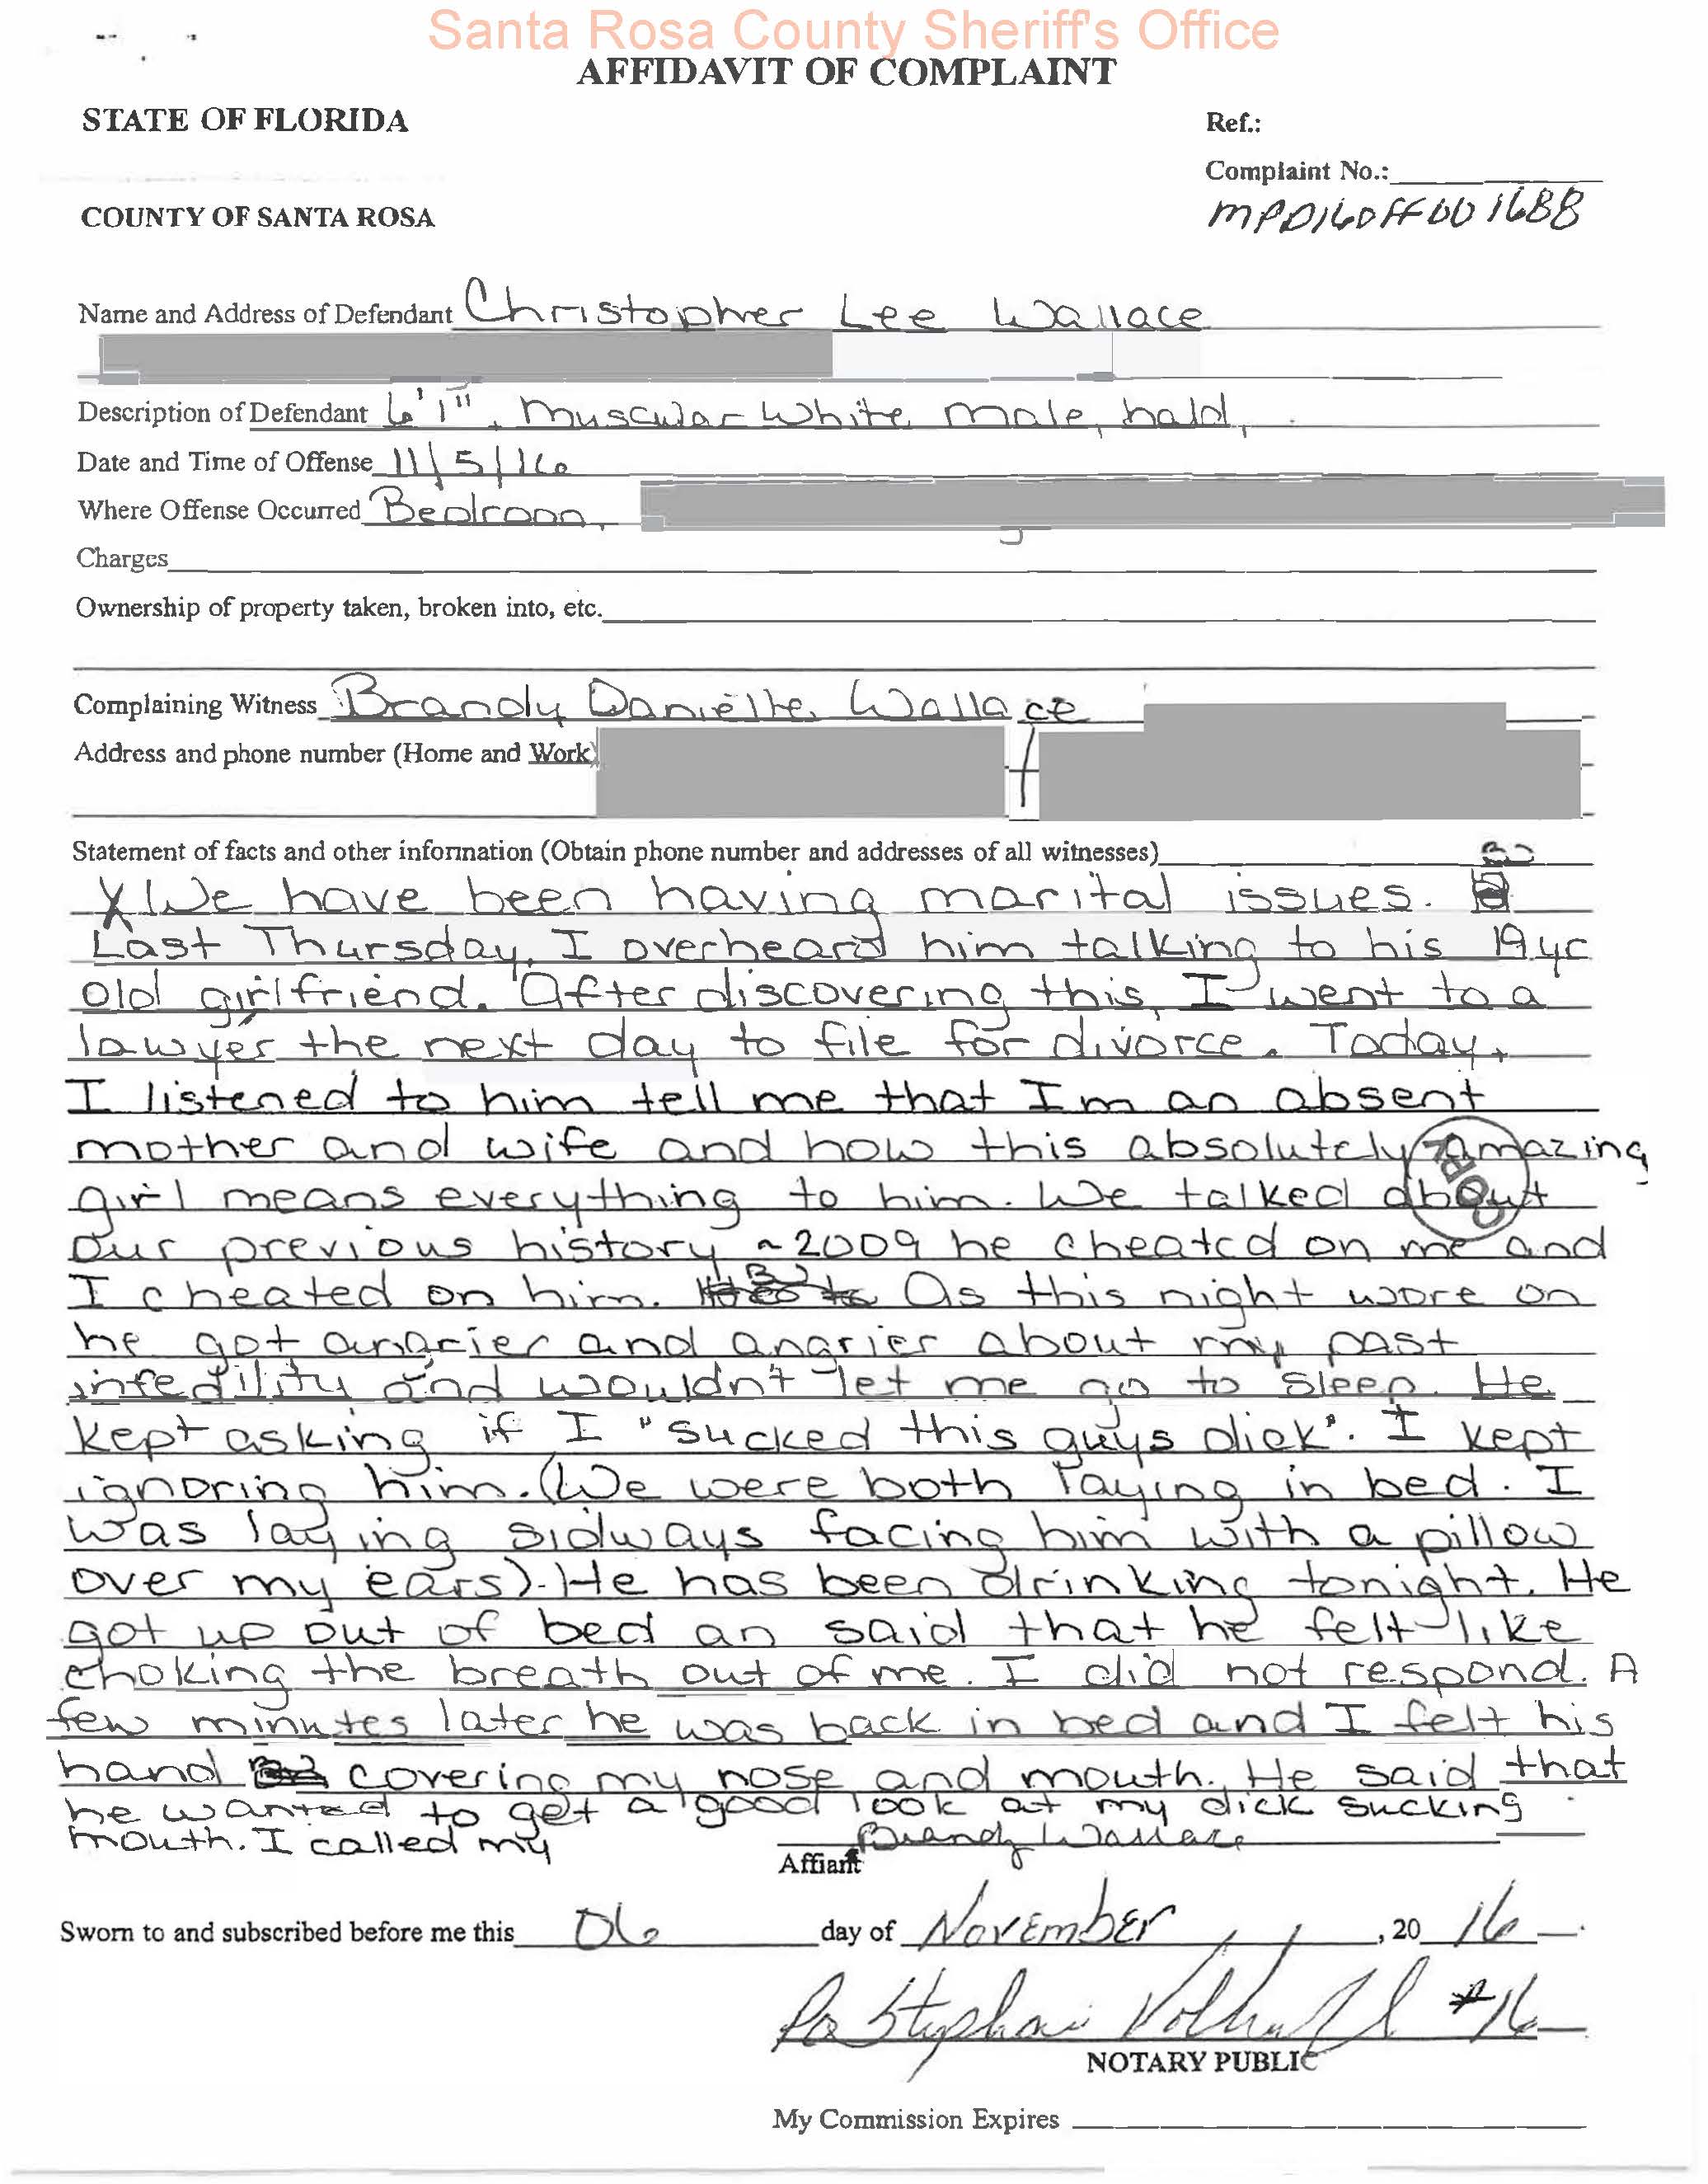 Santa Rosa County Sheriff's Office
AFFIDAVIT OF COMPLAINT
STATE OF FLORIDA
Ref.:
Complaint No.:
COUNTY OF SANTA ROSA
MPD16OFF001688
Name and Address of Defendant Christopher Lee Wallace
Description of Defendant 6'1", muscular white male, bald,
Date and Time of Offense 11/5/16
Where Offense Occurred Bedroom,
Charges
Ownership of property taken, broken into, etc.
Complaining Witness Brandy Danielle Wallace
Address and phone number (Home and Work)
Statement of facts and other information (Obtain phone number and addresses of all witnesses)
X We have been having marital issues.
Last Thursday, I overheard him talking to his 19 yr
old girlfriend. After discovering this, I went to a
lawyer the next day to file for divorce. Today,
I listened to him tell me that Im an absent
mother and wife and how this absolutely amazing
COPY
girl means everything to him. We talked about
our previous history ~2009 he cheated on me and
I cheated on him. As this night wore on
he got angrier and angrier about my past
infedility and wouldn't let me go to sleep. He
kept asking if I "sucked this guys dick". I kept
ignoring him. (We were both laying in bed. I
was laying sidways facing him with a pillow
over my ears). He has been drinking tonight. He
got up out of bed an said that he felt like
choking the breath out of me. I did not respond. A
few minutes later he was back in bed and I felt his
hand covering my nose and mouth. He said that
he wanted to get a good look at my dick sucking
mouth. I called my
Brandy Wallace
Affiant
Sworn to and subscribed before me this 06 day of November, 2016
#16
NOTARY PUBLIC
My Commission Expires